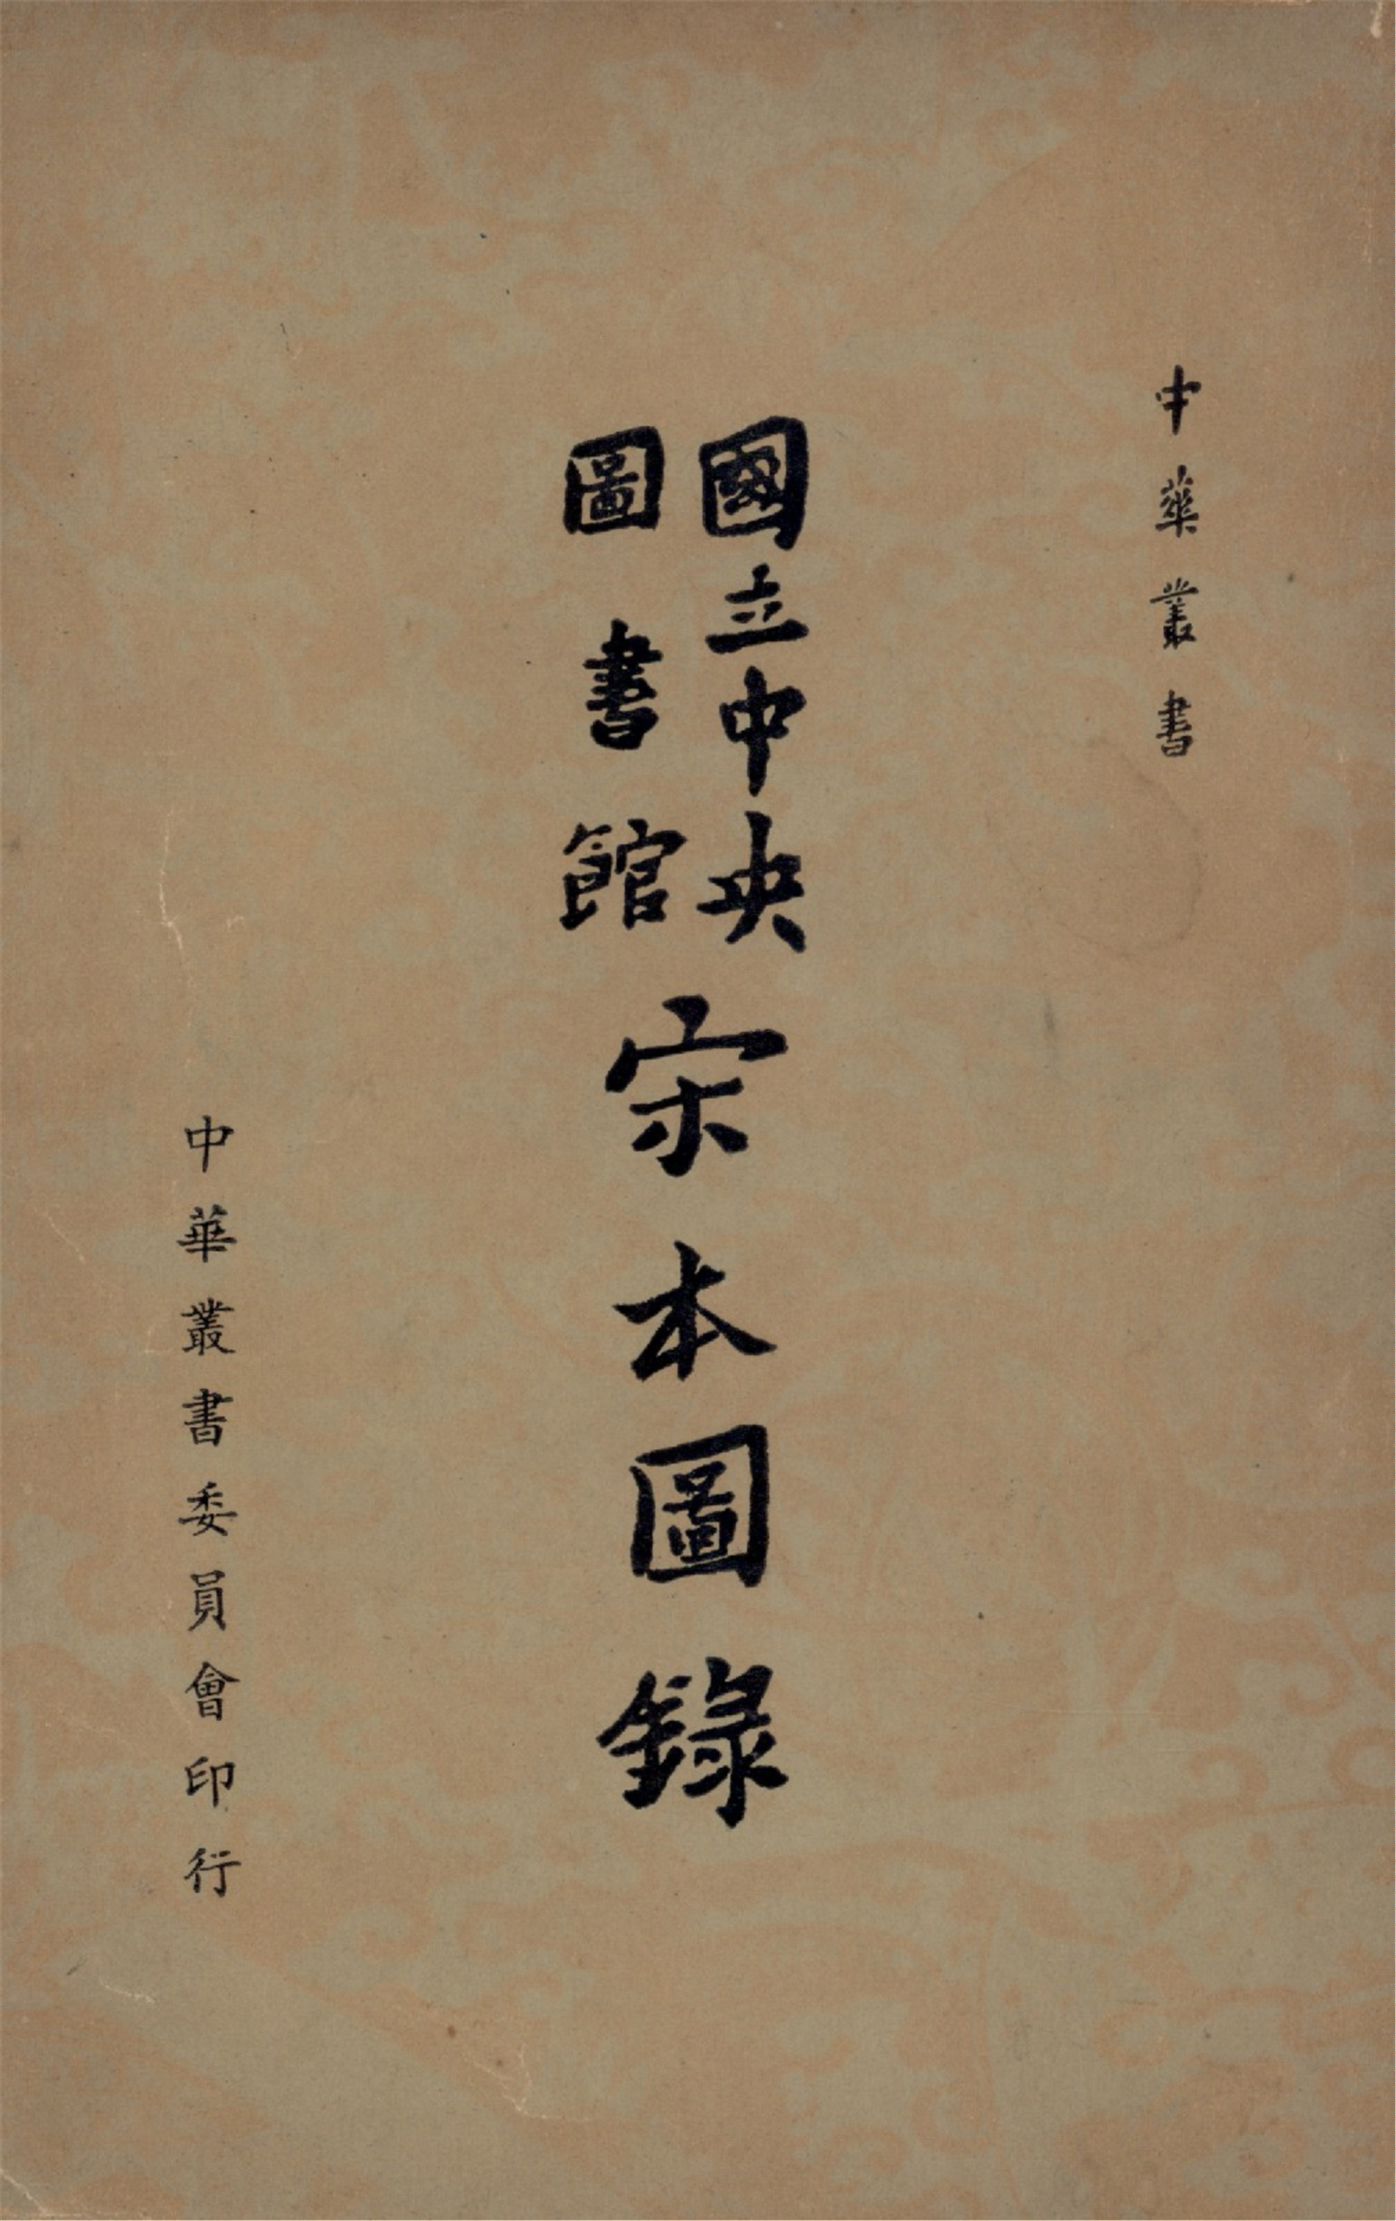 中華叢書
國立中央
圖書館
宋本圖錄
中華叢書委員會印行